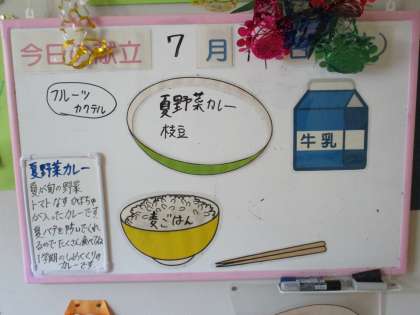 今日の献立 7月
フルーツ
カクテル
夏野菜カレー
枝豆
牛乳
麦ごはん
夏野菜カレー
夏が旬の野菜
トマト なす かぼちゃ
が入ったカレーです
夏バテを防いでくれ
るので たくさん食べてね
1学期の
カレーです